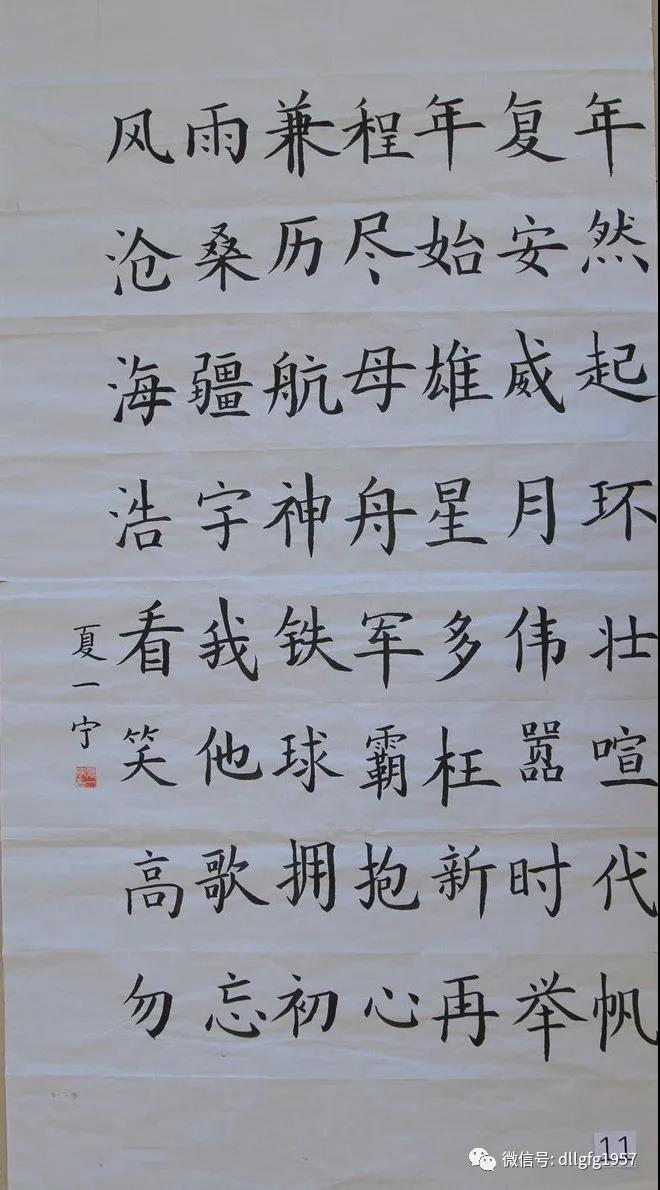 风雨兼程年复年
沧桑历尽始安然
海疆航母雄威起
浩宇神舟星月环
看我铁军多伟壮
笑他球霸枉嚣喧
高歌拥抱新时代
勿忘初心再举帆
夏一宁
11
微信号: dllgfg1957